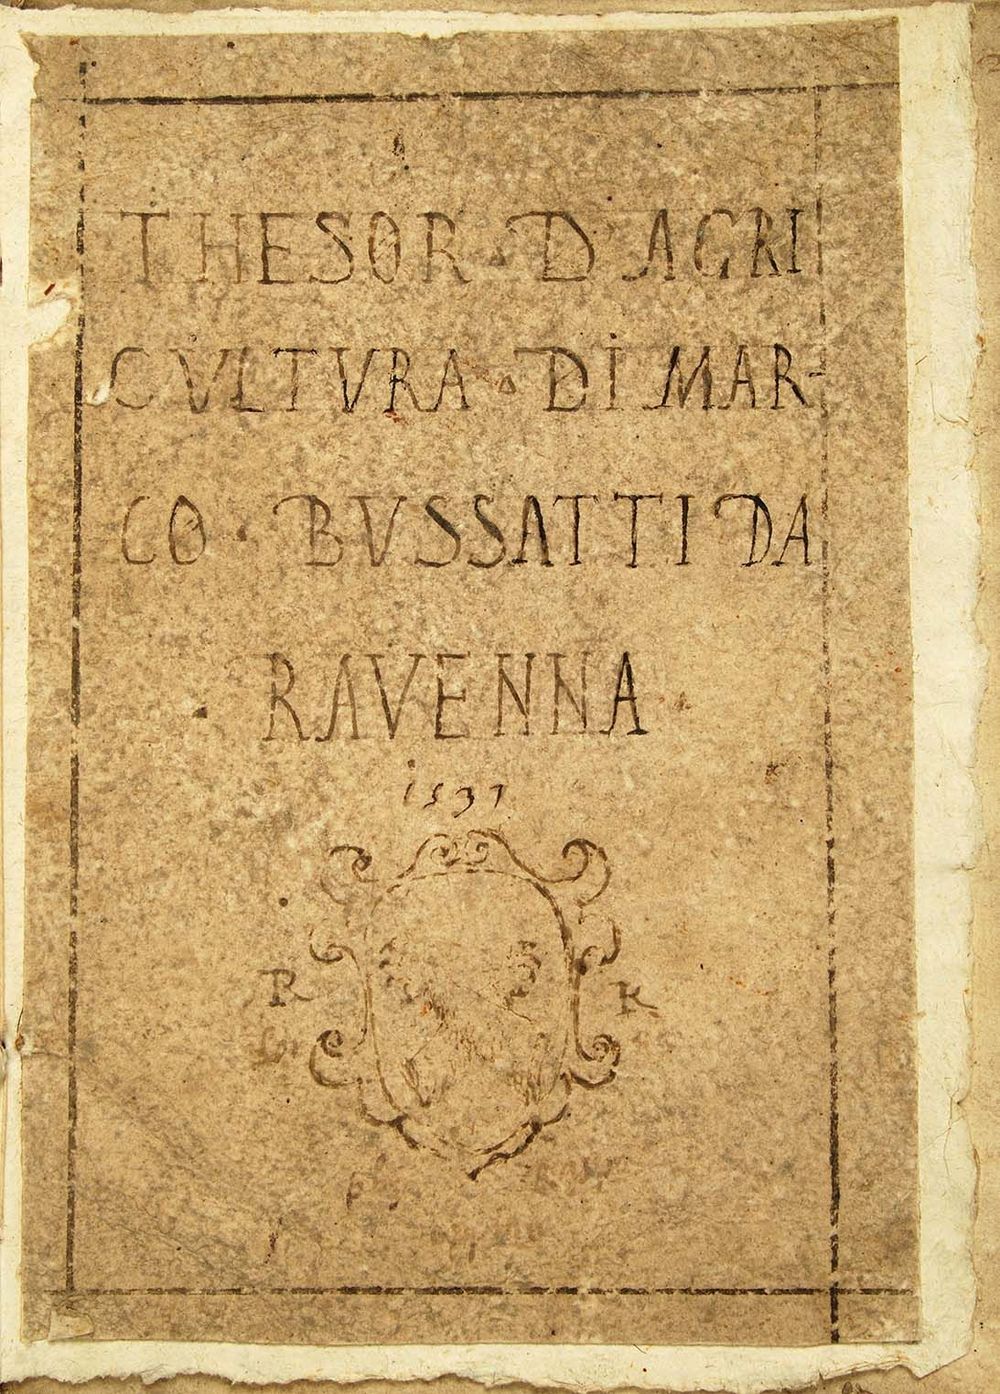 THESOR · D'AGRI
CVLTVRA · DI MAR-
CO · BVSSATTI DA
· RAVENNA ·
1537
R R